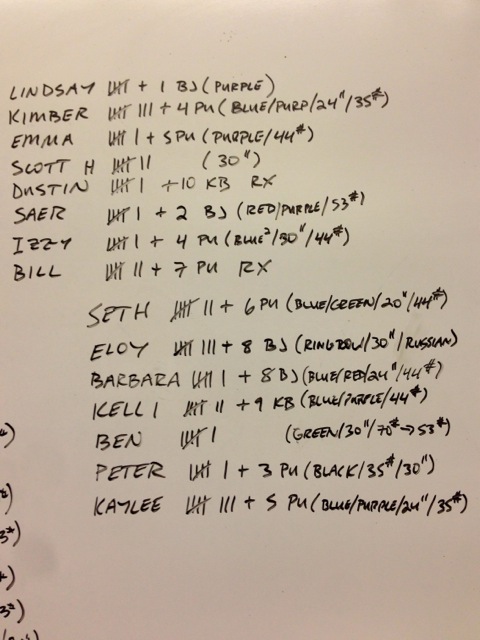 LINDSAY 卌 + 1 BJ (PURPLE)
KIMBER 卌 III + 4 PU (BLUE/PURP/24"/35#)
EMMA 卌 I + 5 PU (PURPLE/44#)
SCOTT H 卌 II (30")
DUSTIN 卌 I +10 KB RX
SAER 卌 I + 2 BJ (RED/PURPLE/53#)
IZZY 卌 I + 4 PU (BLUE²/30"/44#)
BILL 卌 II + 7 PU RX
SETH 卌 II + 6 PU (BLUE/GREEN/20"/44#)
ELOY 卌 III + 8 BJ (RING ROW/30"/RUSSIAN)
BARBARA 卌 I + 8 BJ (BLUE/RED/24"/44#)
KELLI 卌 II + 9 KB (BLUE/PURPLE/44#)
BEN 卌 I (GREEN/30"/70#→53#)
PETER 卌 I + 3 PU (BLACK/35#/30")
KAYLEE 卌 III + 5 PU (BLUE/PURPLE/24"/35#)